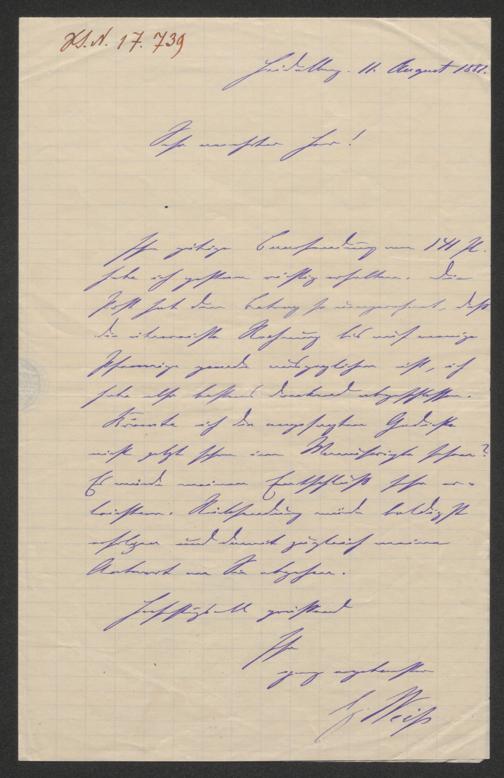 H.I.N. 17.739
Heidelberg. 11. August 1881.
Sehr verehrter Herr!
Ihre gütige Einsendung von 141 M.
habe ich gestern richtig erhalten. Die
Post hat den Betrag so umgerechnet, daß
die Rechnung bis auf wenige
Pfennige gerade ausgeglichen ist, ich
habe also bestens dankend abgeschlossen.
Könnte ich die Gedichte
nicht jetzt schon im Manuskripte sehen?
Es würde meinen Entschluß sehr er-
leichtern. Rücksendung würde baldigst
erfolgen und damit zugleich meine
Antwort an Sie abgehen.
Hochachtungsvoll grüßend
Ihr
ganz ergebenster
G. Weiß